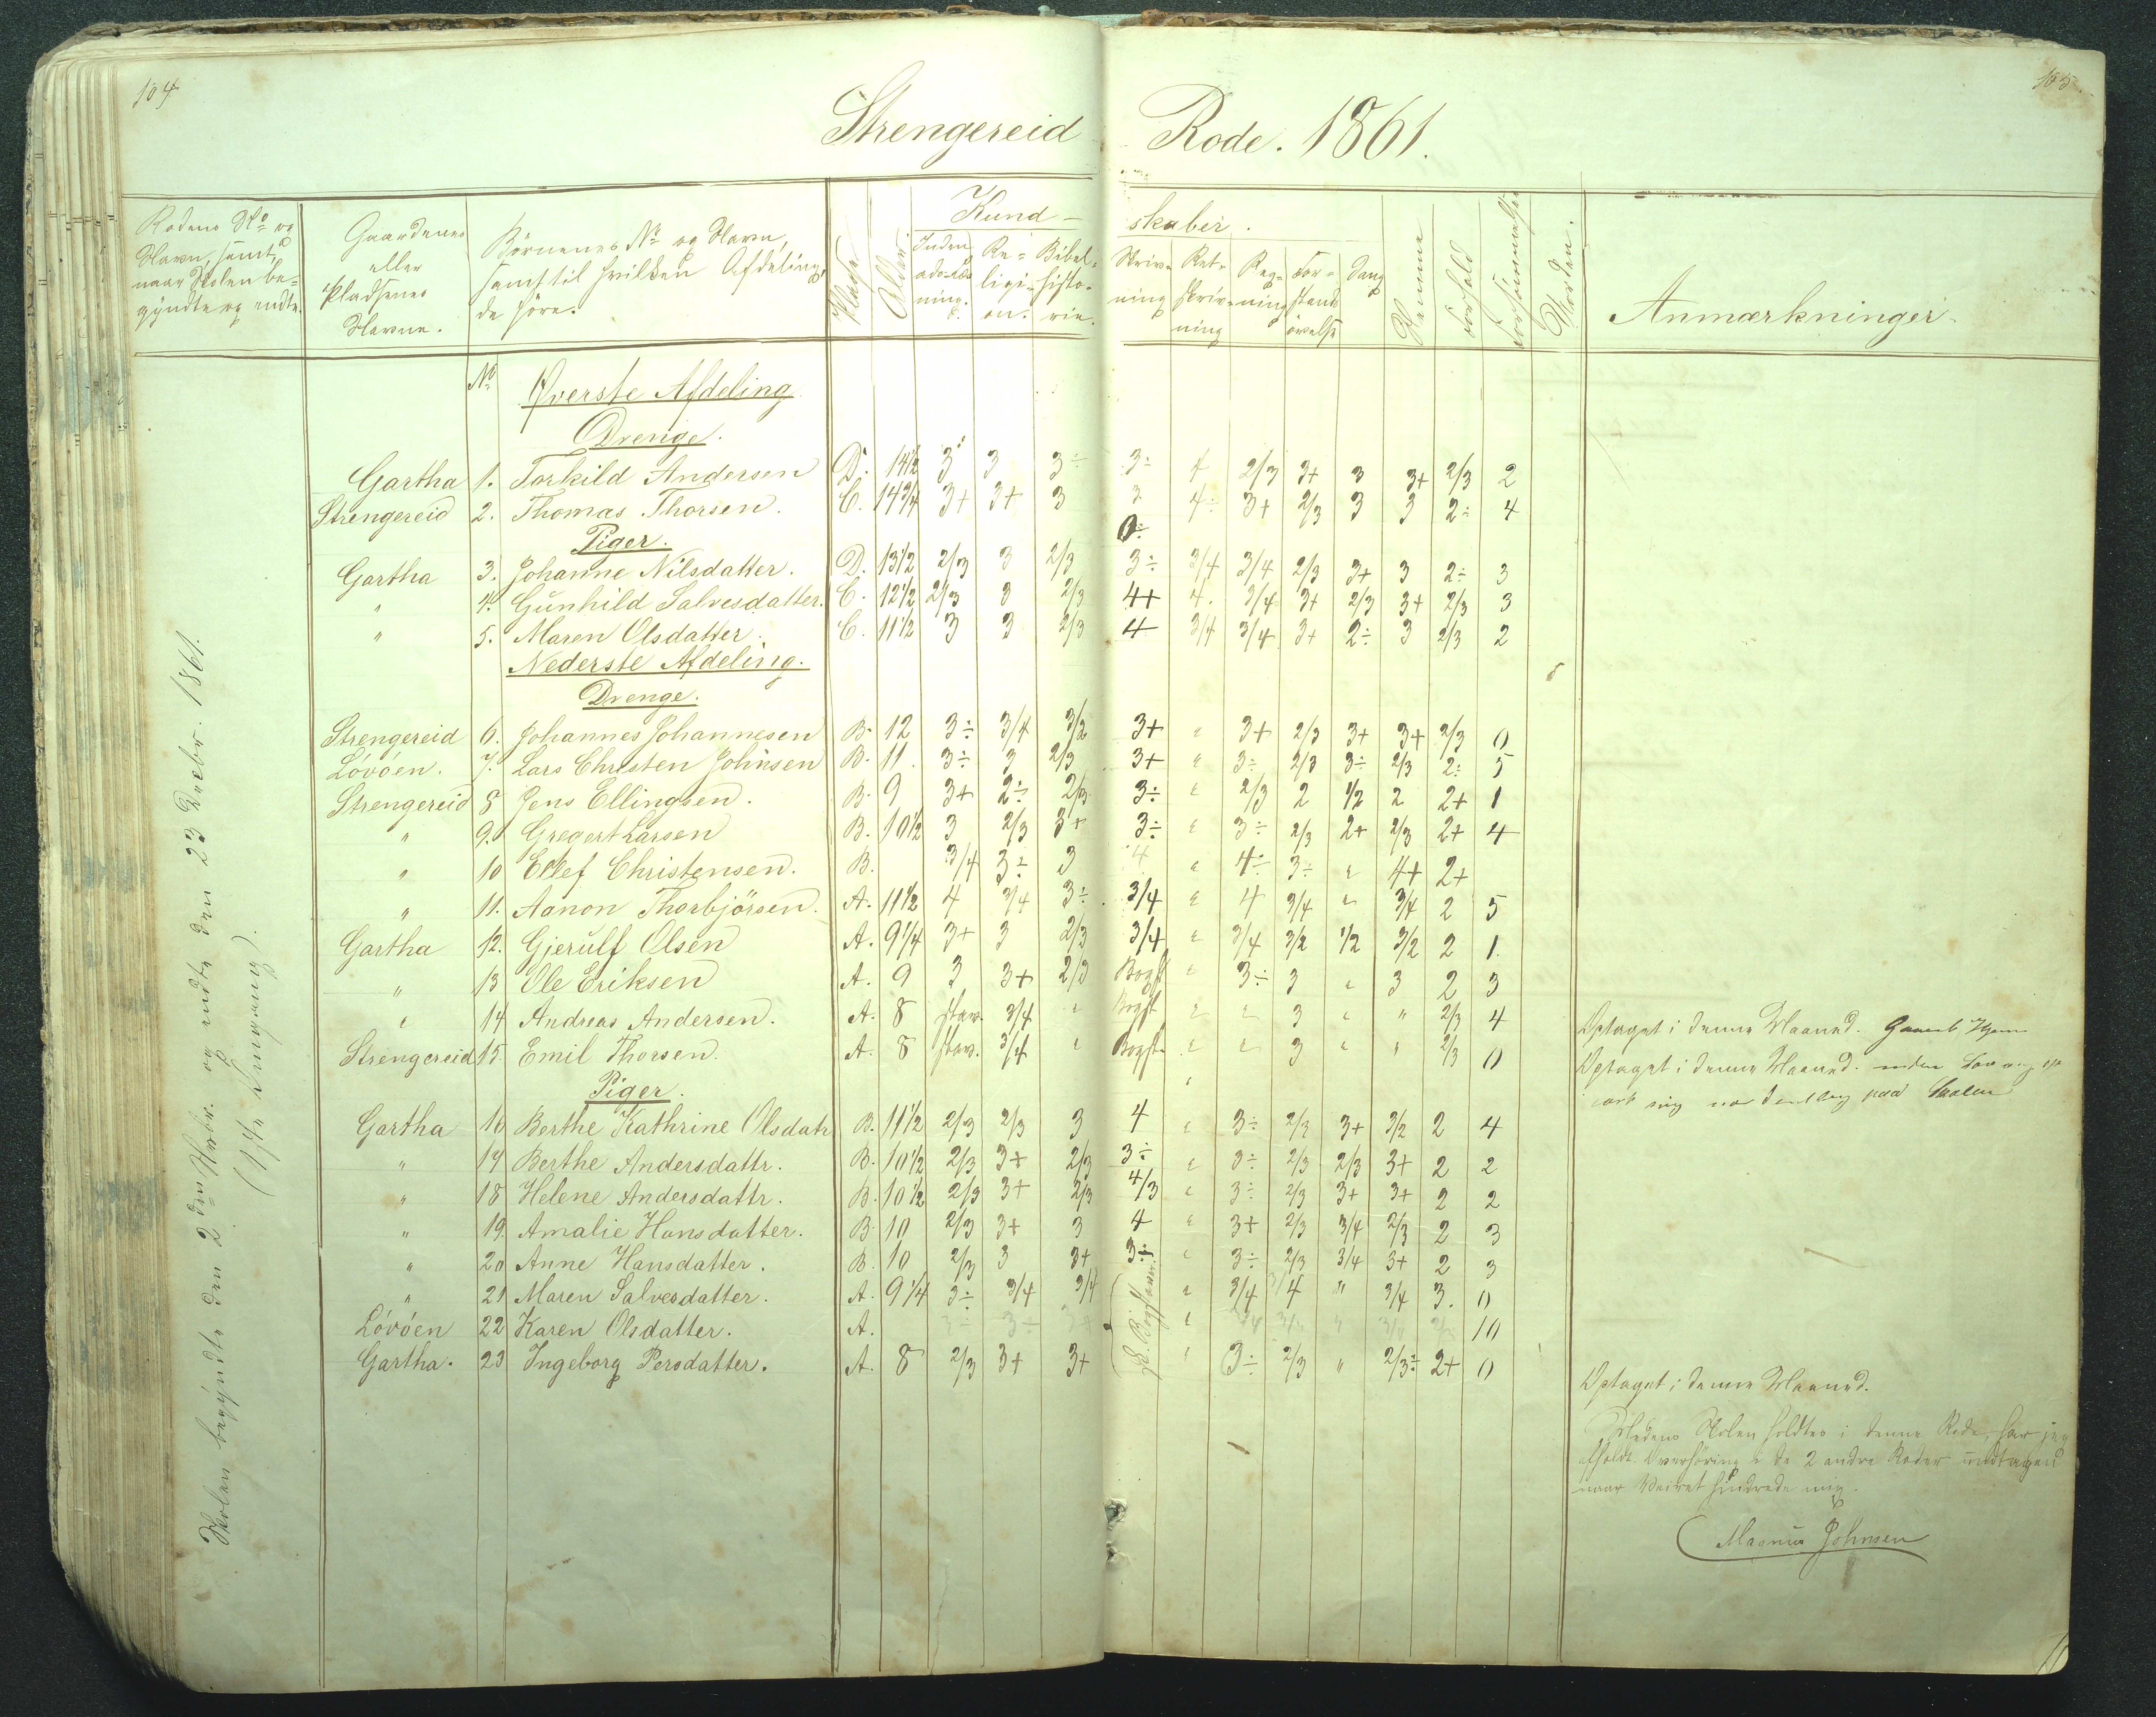 104
105
Strengereid Rode. 1861.
Rodens No og Navn, samt naar Skolen begyndte og endte.
Gaardenes eller Pladsenes Navne.
Børnenes No og Navn, samt til hvilken Afdeling de høre.
Klasse
Alder
Kundskaber.
Indenadslæsning.
Religion.
Bibelhistorie.
Skrivning
Retskrivning
Regning
Forstandsøvelse
Sang
Nemme
Forhold
Forsømmelser
Anmærkninger
No
Øverste Afdeling
Drenge.
Gartha 1. Torkild Andersen D. 14½ 3 3 3÷ 3÷ 4 2/3 3+ 3 3+ 2/3 2
Strengereid 2. Thomas Thorsen. C. 14¾ 3+ 3+ 3 3 4÷ 3+ 2/3 3 3 2÷ 4
Piger.
Gartha 3. Johanne Nilsdatter. D. 13½ 2/3 3 2/3 3÷ 3/4 3/4 2/3 3+ 3 2÷ 3
" 4. Gunhild Salvesdatter. C. 12½ 2/3 3 2/3 4+ 4. 3/4 3+ 2/3 3+ 2/3 3
" 5. Maren Olsdatter. C. 11½ 3 3 2/3 4 3/4 3/4 3+ 2÷ 3 2/3 2
Nederste Afdeling.
Drenge.
Strengereid 6. Johannes Johannesen B. 12 3÷ 3/4 3/2 3+ " 3+ 2/3 3+ 3+ 2/3 0
Lövöen. 7. Lars Christen Johnsen B. 11. 3÷ 3 2/3 3+ " 3÷ 2/3 3÷ 2/3 2÷ 5
Strengereid 8 Jens Ellingsen. B. 9 3+ 2÷ 2/3 3÷ " 2/3 2 1/2 2 2+ 1
" 9. Gregert Larsen B. 10½ 3 2/3 3+ 3÷ " 3÷ 2/3 2+ 2/3 2+ 4
" 10 Ellef Christensen. B. 3/4 3÷ 3 4 " 4÷ 3÷ " 4+ 2+
" 11. Aanon Thorbjörsen. A. 11½ 4 3/4 3÷ 3/4 " 4 3/4 " 3/4 2 5
Gartha 12. Gjerulf Olsen A. 9¼ 3+ 3 2/3 3/4 " 3/4 3/2 1/2 3/2 2 1.
" 13 Ole Eriksen A. 9 3 3+ 2/3 Bogst " 3÷ 3 " 3 2 3
" 14 Andreas Andersen. A. 8 stav. 3/4 " Bogst " " 3 " " 2/3 4 Optaget i denne Maaned.
Strengereid 15. Emil Thorsen. A. 8 stav. 3/4 " Bogst. " " 3 " " 2/3 0 Optaget i denne Maaned.
Piger.
Gartha 16 Berthe Kathrine Olsdatr B. 11½ 2/3 2/3 3 4 " 3÷ 2/3 3+ 3/2 2 4
" 17 Berthe Andersdattr. B. 10½ 2/3 3+ 2/3 3÷ " 3÷ 2/3 2/3 3+ 2 2
" 18 Helene Andersdattr. B. 10½ 2/3 3+ 2/3 4/3 " 3÷ 2/3 3+ 3+ 2 2
" 19. Amalie Hansdatter. B. 10 2/3 3+ 3 4 " 3+ 2/3 3/4 2/3 2 3
" 20 Anne Hansdatter. B. 10 2/3 3 3+ 3÷ " 3÷ 2/3 3/4 3+ 2 3
" 21 Maren Salvesdatter. A. 9¼ 3÷ 3/4 3/4 " 3/4 4 " 3/4 3. 0
Lövöen 22 Karen Olsdatter. A. 10
Gartha. 23 Ingeborg Persdatter. A. 8 2/3 3+ 3+ " 3÷ 2/3 " 2/3÷ 2+ 0 Optaget i denne Maaned.
Medens Skolen holdtes i denne Rode, har jeg
afholdt Overhøring i de 2 andre Roder undtagen
naar Veiret hindrede mig.
Magnus Johnsen
Skolen begyndte den 2den Novbr. og endte den 23 Decbr. 1861.